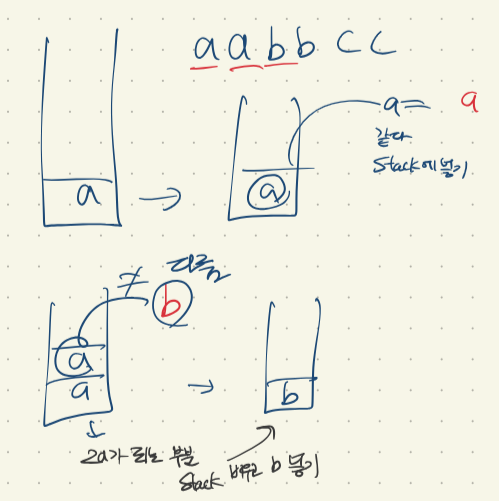 a a b b c c
a
a
a = a
같다
Stack에 넣기
≠ 다름
b
a
a
b
2a가 되는 부분
Stack 비우고 b 넣기